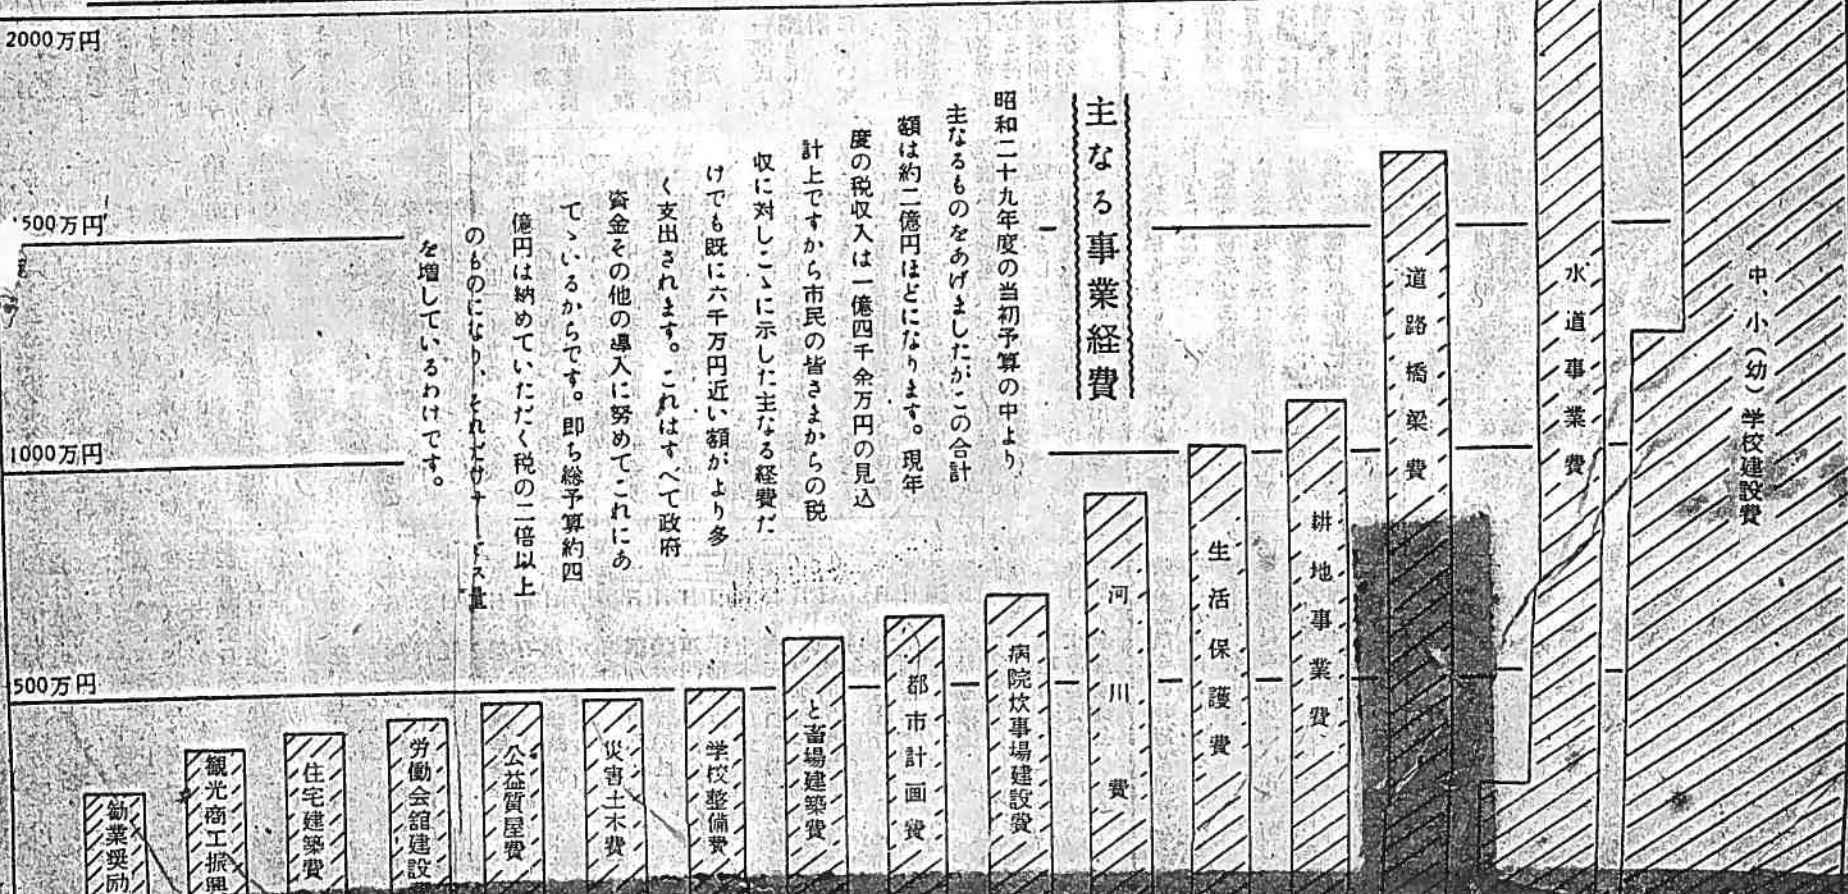 主なる事業経費
昭和二十九年度の当初予算の中より
主なるものをあげましたがこの合計
額は約二億円ほどになります。現年
度の税収入は一億四千余万円の見込
計上ですから市民の皆さまからの税
収に対しこゝに示した主なる経費だ
けでも既に六千万円近い額がより多
く支出されます。これはすべて政府
資金その他の導入に努めてこれにあ
てゝいるからです。即ち総予算約四
億円は納めていただく税の二倍以上
のものになり、それだけサービス量
を増しているわけです。
2000万円
500万円
1000万円
500万円
中、小(幼)学校建設費
水道事業費
道路橋梁費
耕地事業費
生活保護費
河川費
病院炊事場建設費
都市計画費
と畜場建築費
学校整備費
災害土木費
公益質屋費
労働会館建設費
住宅建築費
観光商工振興
勧業奨励